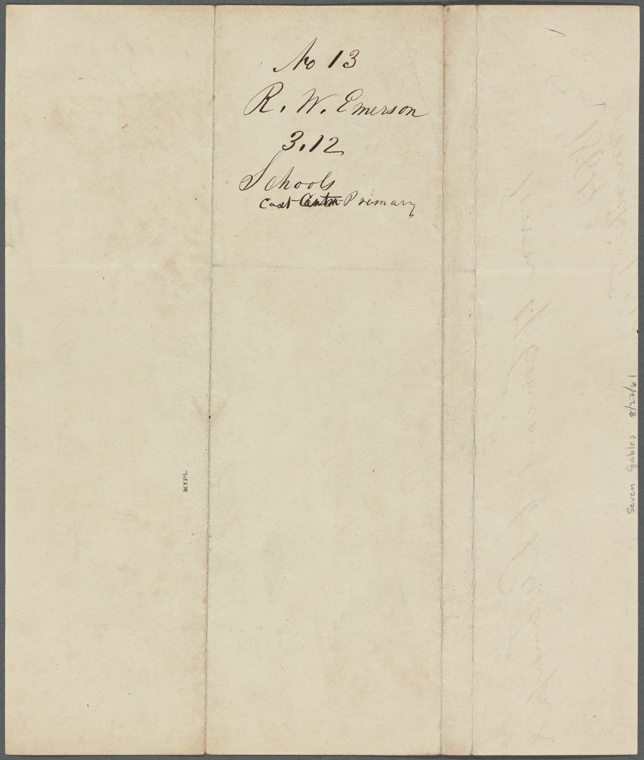 No 13
R. W. Emerson
3.12
Schools
East Primary
NYPL
Seven Gables 8/22/61